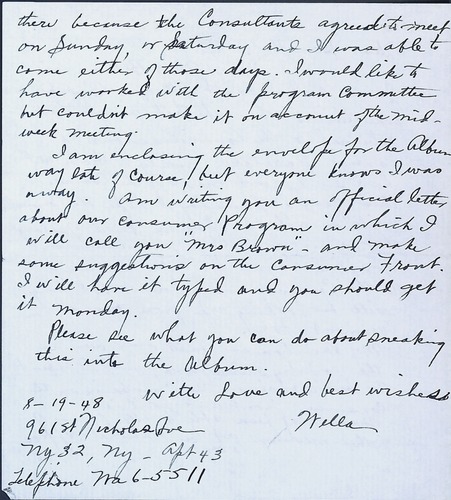 there because the Consultants agreed to meet
on Sunday, or Saturday and I was able to
come either of those days. I would like to
have worked with the program Committee
but couldn't make it on account of the mid-
week meeting.
I am enclosing the envelope for the Album
way late of course, but everyone knows I was
away. Am writing you an official letter
about our consumer Program in which I
will call you "Mrs Brown" - and make
some suggestions on the Consumer Front.
I will have it typed and you should get
it Monday.
Please see what you can do about sneaking
this into the Album.
With Love and best wishes
Wella
8-19-48
961 St Nicholas Ave
Ny 32, Ny - Apt 43
Telephone Wa 6-5511